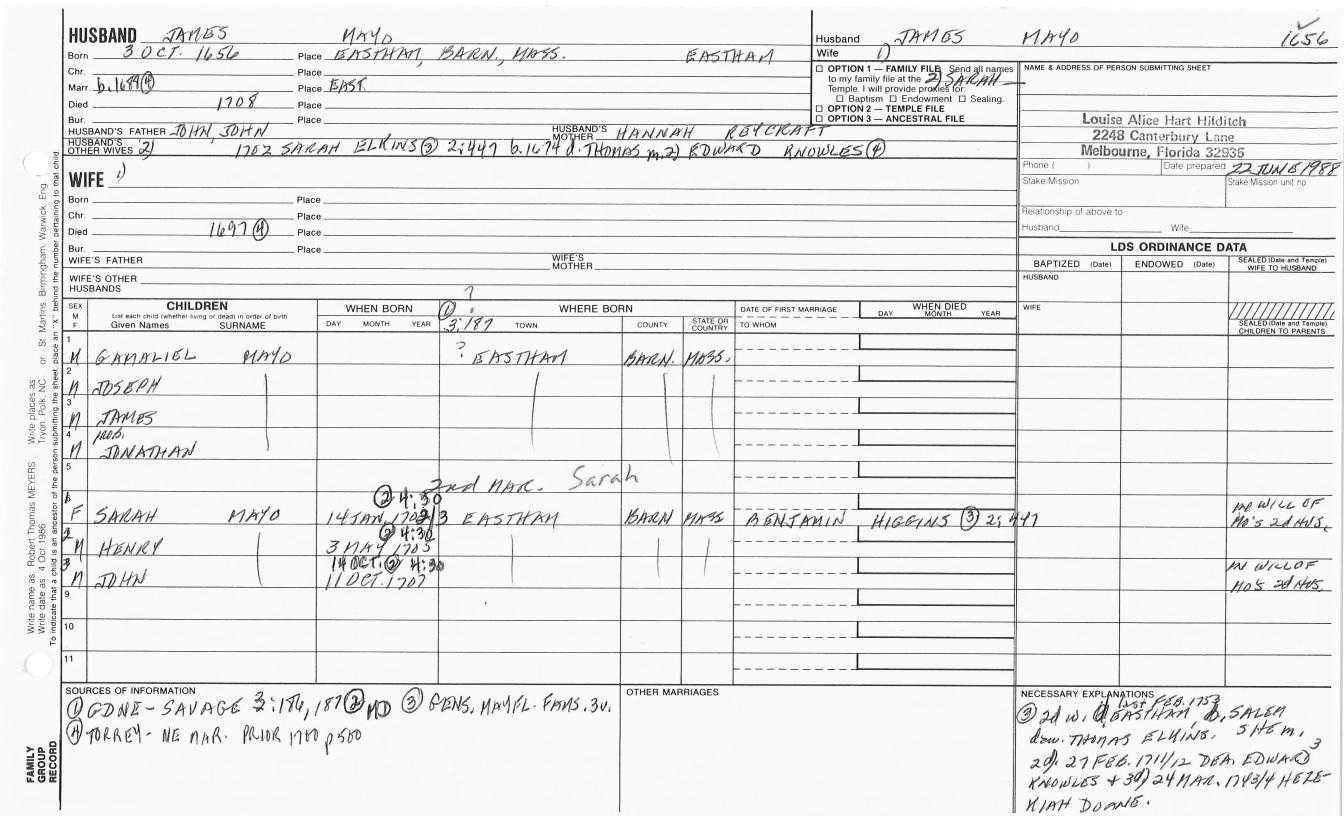 HUSBAND JAMES MAYO
Born 3 OCT. 1656 Place EASTHAM, BARN., MASS. EASTHAM
Chr. Place
Marr. b. 1689 (4) Place EAST.
Died 1708 Place
Bur. Place
HUSBAND'S FATHER JOHN, JOHN HUSBAND'S MOTHER HANNAH REYCRAFT
HUSBAND'S OTHER WIVES 2) 1702 SARAH ELKINS (3) 2:447 b. 1674 d. THOMAS m. 2) EDWARD KNOWLES (4)
WIFE 1)
Born Place
Chr. Place
Died 1697 (4) Place
Bur. Place
WIFE'S FATHER WIFE'S MOTHER
WIFE'S OTHER HUSBANDS
Husband JAMES MAYO 1656
Wife 1)
2) SARAH
☐ OPTION 1 — FAMILY FILE Send all names
to my family file at the
Temple. I will provide proxies for:
☐ Baptism ☐ Endowment ☐ Sealing.
☐ OPTION 2 — TEMPLE FILE
☐ OPTION 3 — ANCESTRAL FILE
NAME & ADDRESS OF PERSON SUBMITTING SHEET
Louise Alice Hart Hilditch
2248 Canterbury Lane
Melbourne, Florida 32935
Phone ( ) Date prepared 22 JUNE 1988
Stake/Mission Stake/Mission unit no
Relationship of above to
Husband Wife
LDS ORDINANCE DATA
BAPTIZED (Date) ENDOWED (Date) SEALED (Date and Temple) WIFE TO HUSBAND
HUSBAND
WIFE
SEALED (Date and Temple) CHILDREN TO PARENTS
SEX M F
CHILDREN
List each child (whether living or dead) in order of birth
Given Names SURNAME
WHEN BORN
DAY MONTH YEAR
?
(1) 3:187
WHERE BORN
TOWN COUNTY STATE OR COUNTRY
DATE OF FIRST MARRIAGE
TO WHOM
WHEN DIED
DAY MONTH YEAR
1 M GAMALIEL MAYO ? EASTHAM BARN. MASS.
2 M JOSEPH
3 M JAMES
4 M PROB. JONATHAN
5
2nd MAR. Sarah
(2) 4:30
6 1 F SARAH MAYO 14 JAN. 1702/3 EASTHAM BARN MASS BENJAMIN HIGGINS (3) 2:447 IN WILL OF MO'S 2d HUS.
(2) 4:30
2 M HENRY 3 MAY 1705
14 OCT. (2) 4:30
3 M JOHN 11 OCT. 1707 IN WILL OF MO'S 2d HUS.
9
10
11
SOURCES OF INFORMATION
(1) GDNE - SAVAGE 3:186, 187 (2) MD (3) GENS. MAYFL. FAMS. 3v.
(4) TORREY - NE MAR. PRIOR 1700 p 500
OTHER MARRIAGES
NECESSARY EXPLANATIONS
FEB. 1753
(3) 2d w. d EASTHAM, b. SALEM
daw. THOMAS ELKINS. SHE m.
2d). 27 FEB. 1711/12 DEA. EDWARD 3
KNOWLES + 3d) 24 MAR. 1743/4 HEZE-
KIAH DOANE.
Write name as: Robert Thomas MEYERS Write places as: Tryon, Polk, NC or St Martins, Birmingham, Warwick, Eng
Write date as: 4 Oct 1986
To indicate that a child is an ancestor of the person submitting the sheet, place an "X" behind the number pertaining to that child.
FAMILY
GROUP
RECORD